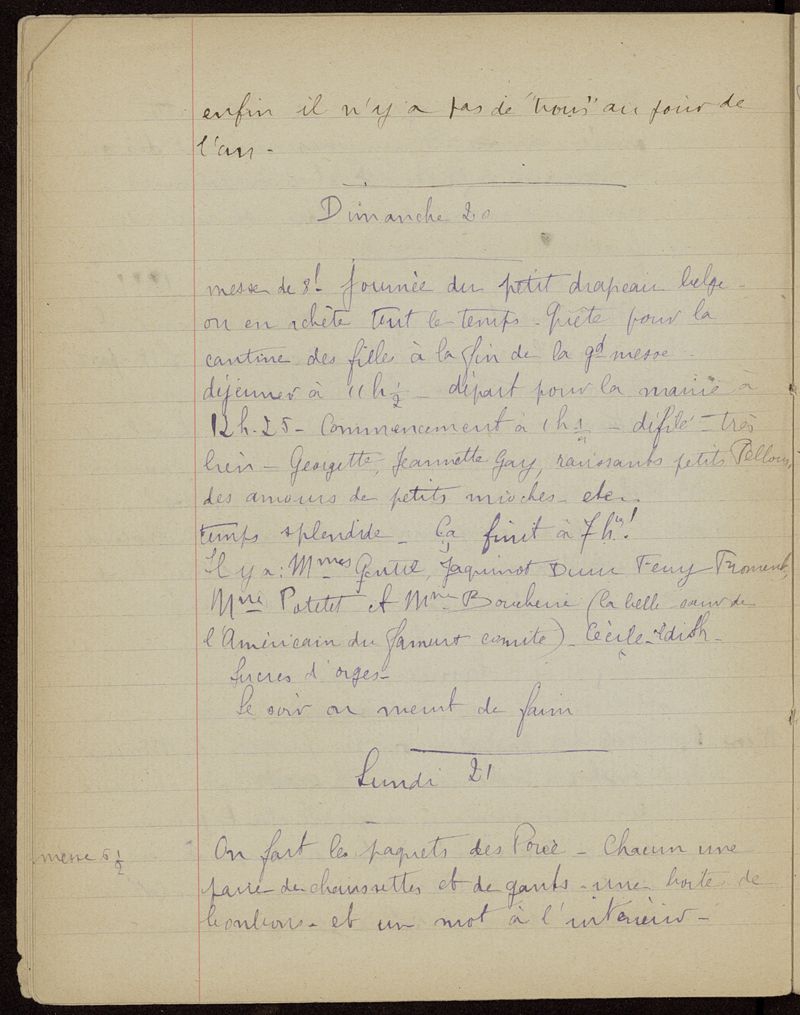 enfin il n'y a pas de "trous" au jour de
l'an -
Dimanche 20
messe de 8h Journée du petit drapeau belge -
on en achète tout le temps - Quête pour la
cantine des filles à la fin de la gd messe -
déjeuner à 11h 1/2 - départ pour la mairie à
12h.25 - Commencement à 1h 1/2 - défilé - très
bien - Georgette, Jeannette Gay, ravissants petits
des amours de petits mioches - etc..
temps splendide - Ça finit à 7h!
Il y a : Mmes Gentil, Jaquinot Feny Froment,
Mme Potetet et Mme Boucherie (la belle sœur de
l'Américain du fameux comité) - Cécile - Edith -
Sucres d'orges -
Le soir on meurt de faim
Lundi 21
messe 6 1/2
On fait les paquets des - Chacun une
paire de chaussettes et de gants - une boîte de
bonbons - et un mot à l'intérieur -